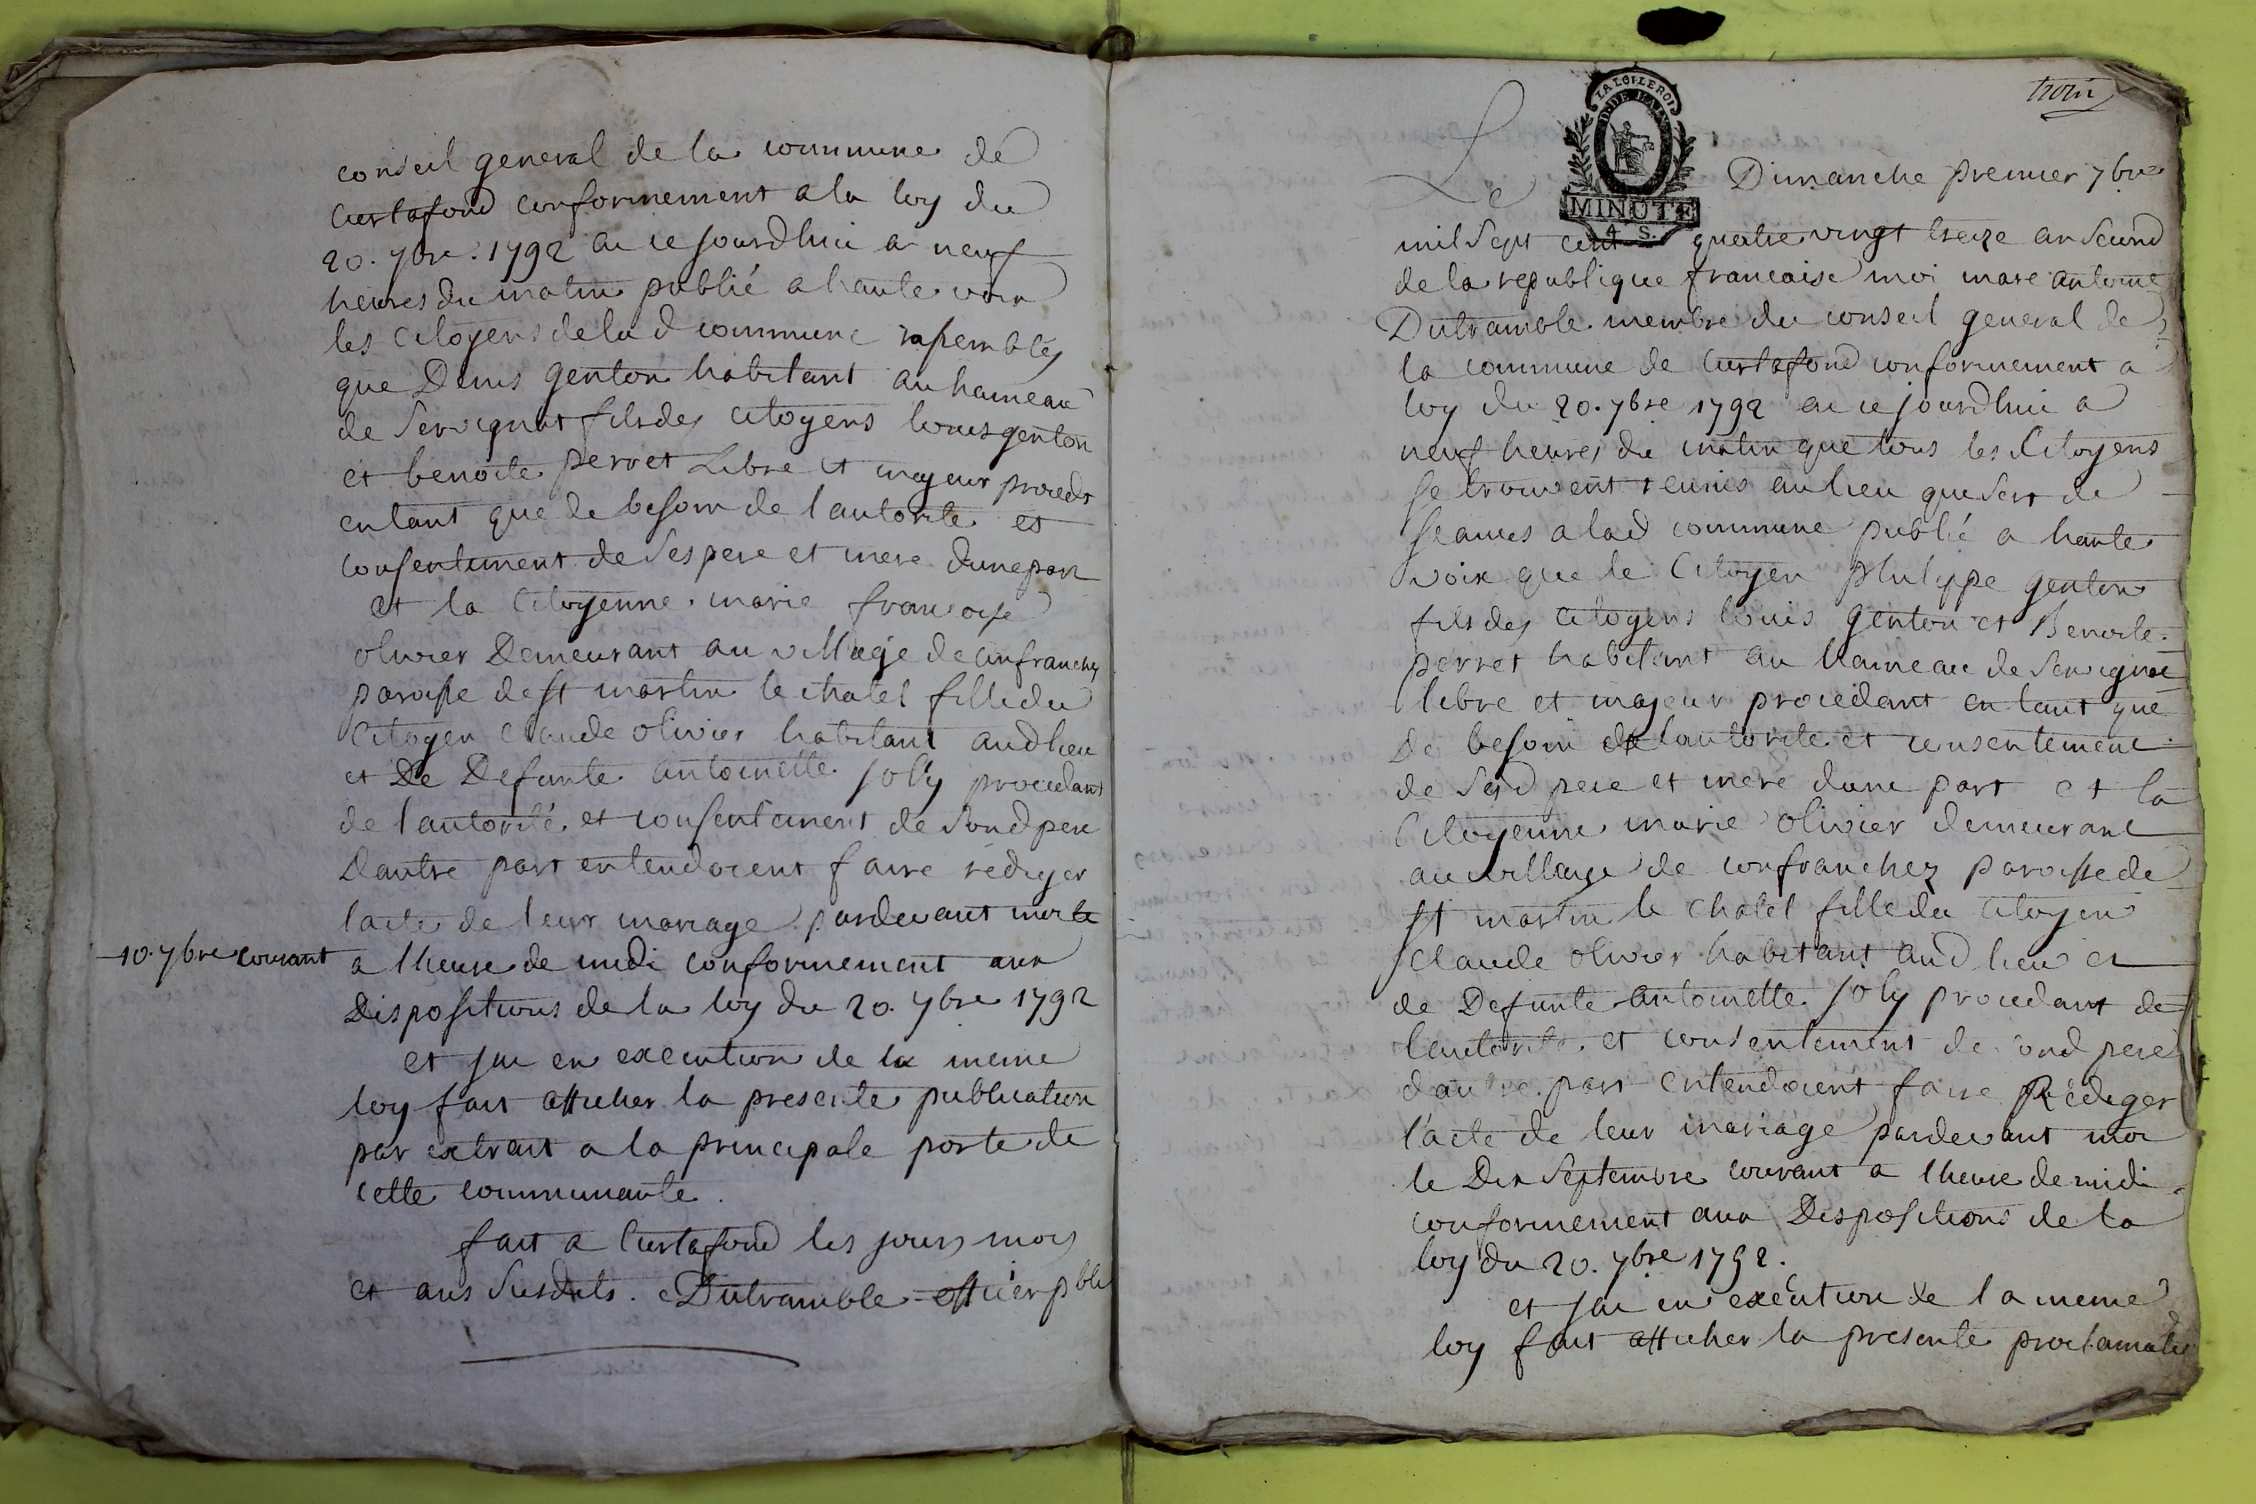 conseil general de la commune de
Curtafond conformement a la loy du
20. 7bre. 1792 ai ce jourdhui a neuf
heures du matin publié a haute voix
les Citoyens de lad commune rassemblés
que Denis genton habitant au hameau
de Servignat fils des citoyens louis genton
et benoite perret Libre et mageur procedt
entant que de besoin de lautorite et
consentement de Ses pere et mere dune part
et la Citoyenne marie francoise
olivier Demeurant au village de Confranchez
paroisse de st martin le chatel fille du
Citoyen Claude olivier habitant aud lieu
et De Defunte antoinette joly procedant
de lautorité et consentement de Sond pere
Dautre part entendoient faire rediger
lacte de leur mariage pardevant moi le
10. 7bre courant
a lheure de midi conformement aux
Dispositions de la loy du 20. 7bre 1792
et jai en execution de la meme
loy fait afficher la presente publication
par extrait a la principale porte de
cette communauté.
fait a Curtafond les jours mois
et ans Susdits. Dutramble officier pble
trois
LA LOI LE ROI
MINUTE
4 S.
Le Dimanche premier 7bre
mil Sept cent quatre vingt treize an Second
de la republique francaise moi marc antoine
Dutramble membre du conseil general de
la commune de Curtafond conformement a
loy du 20. 7bre 1792 ai ce jourdhui a
neuf heures du matin que tous les Citoyens
se trouvent reunis au lieu que Sert de
seances a lad commune publié a haute
voix que le Citoyen philippe genton
fils des citoyens louis genton et Benoite
perret habitant au hameau de Servignat
libre et mageur procedant entant que
De besoin de lautorite et consentement
de Sesd pere et mere dune part et la
Citoyenne marie olivier demeurant
au village de confranchez paroisse de
st martin le chatel fille du citoyen
Claude olivier habitant aud lieu et
de Defunte antoinette joly procedant de
lautorite et consentement de sond pere
dautre part entendoient faire Rediger
l'acte de leur mariage pardevant moi
le Dix Septembre courant a lheure de midi
conformement aux Dispositions de la
loy du 20. 7bre 1792.
et jai en execution de la meme
loy fait afficher la presente proclamation